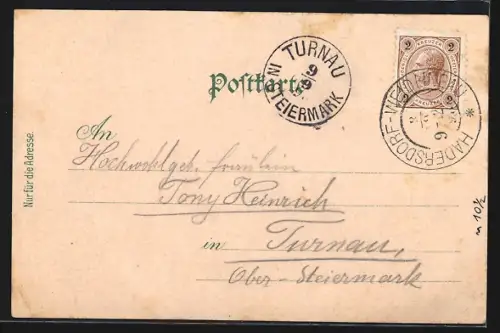 Postkarte
TURNAU
IN STEIERMARK
9/9
2 KREUZER 2
HADERSDORF-WEIDLINGAU *
6
Nur für die Adresse.
An
Hochwohlgeb. Fräulein
Tony Heinrich
in
Turnau,
Ober-Steiermark
10½